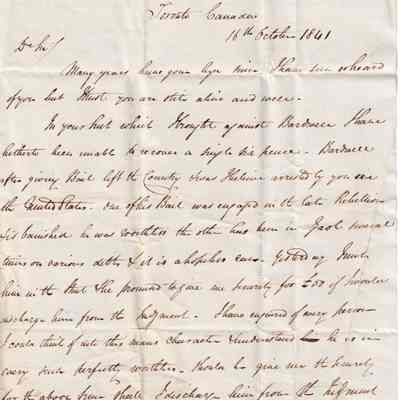 Toronto Canada
18th October 1841
Dr Sir/
Many years have gone bye since I have seen or heard
of you but I trust you are still alive and well.
In your suit which I brought against Bardwell I have
hitherto been unable to recover a single six pence. Bardwell
after giving Bail left the Country & was I believe arrested by you in
the United States. One of his Bail was engaged in the late Rebellion
& is banished he was worthless the other has been in Gaol several
times on various debts & it is a hopeless case. Yesterday I met
him in the Street & he promised to give me security for £50 if I would
discharge him from the Judgment. I have enquired of every person
I could think of as to this mans character & understand he is in
every such perfectly worthless. Should he give me the security
for the above sum shall I discharge him from the Judgment